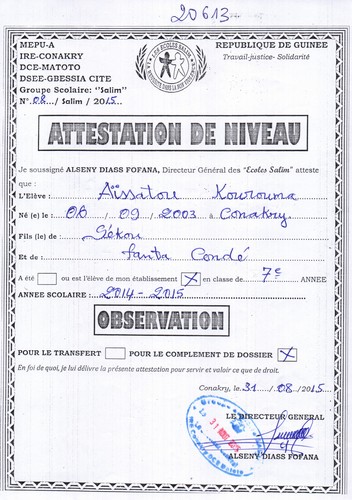 20613
MEPU-A
REPUBLIQUE DE GUINEE
IRE-CONAKRY
Travail-justice- Solidarité
DCE-MATOTO
DSEE-GBESSIA CITE
Groupe Scolaire: "Salim"
N°.08../ Salim / 2015...
ATTESTATION DE NIVEAU
Je soussigné ALSENY DIASS FOFANA, Directeur Général des "Ecoles Salim" atteste
que :
L'Elève : Aïssatou Kourouma
Né (e) le : 08 / 09 / 2003 à Conakry
Fils (le) de : Sékou
Et de : Fanta Condé
A été ou est l'élève de mon établissement X en classe de 7e ANNEE
ANNEE SCOLAIRE : 2014 - 2015
OBSERVATION
POUR LE TRANSFERT POUR LE COMPLEMENT DE DOSSIER X
En foi de quoi, je lui délivre la présente attestation pour servir et valoir ce que de droit.
Conakry, le 31 / 08 / 2015
LE DIRECTEUR GENERAL
ALSENY DIASS FOFANA